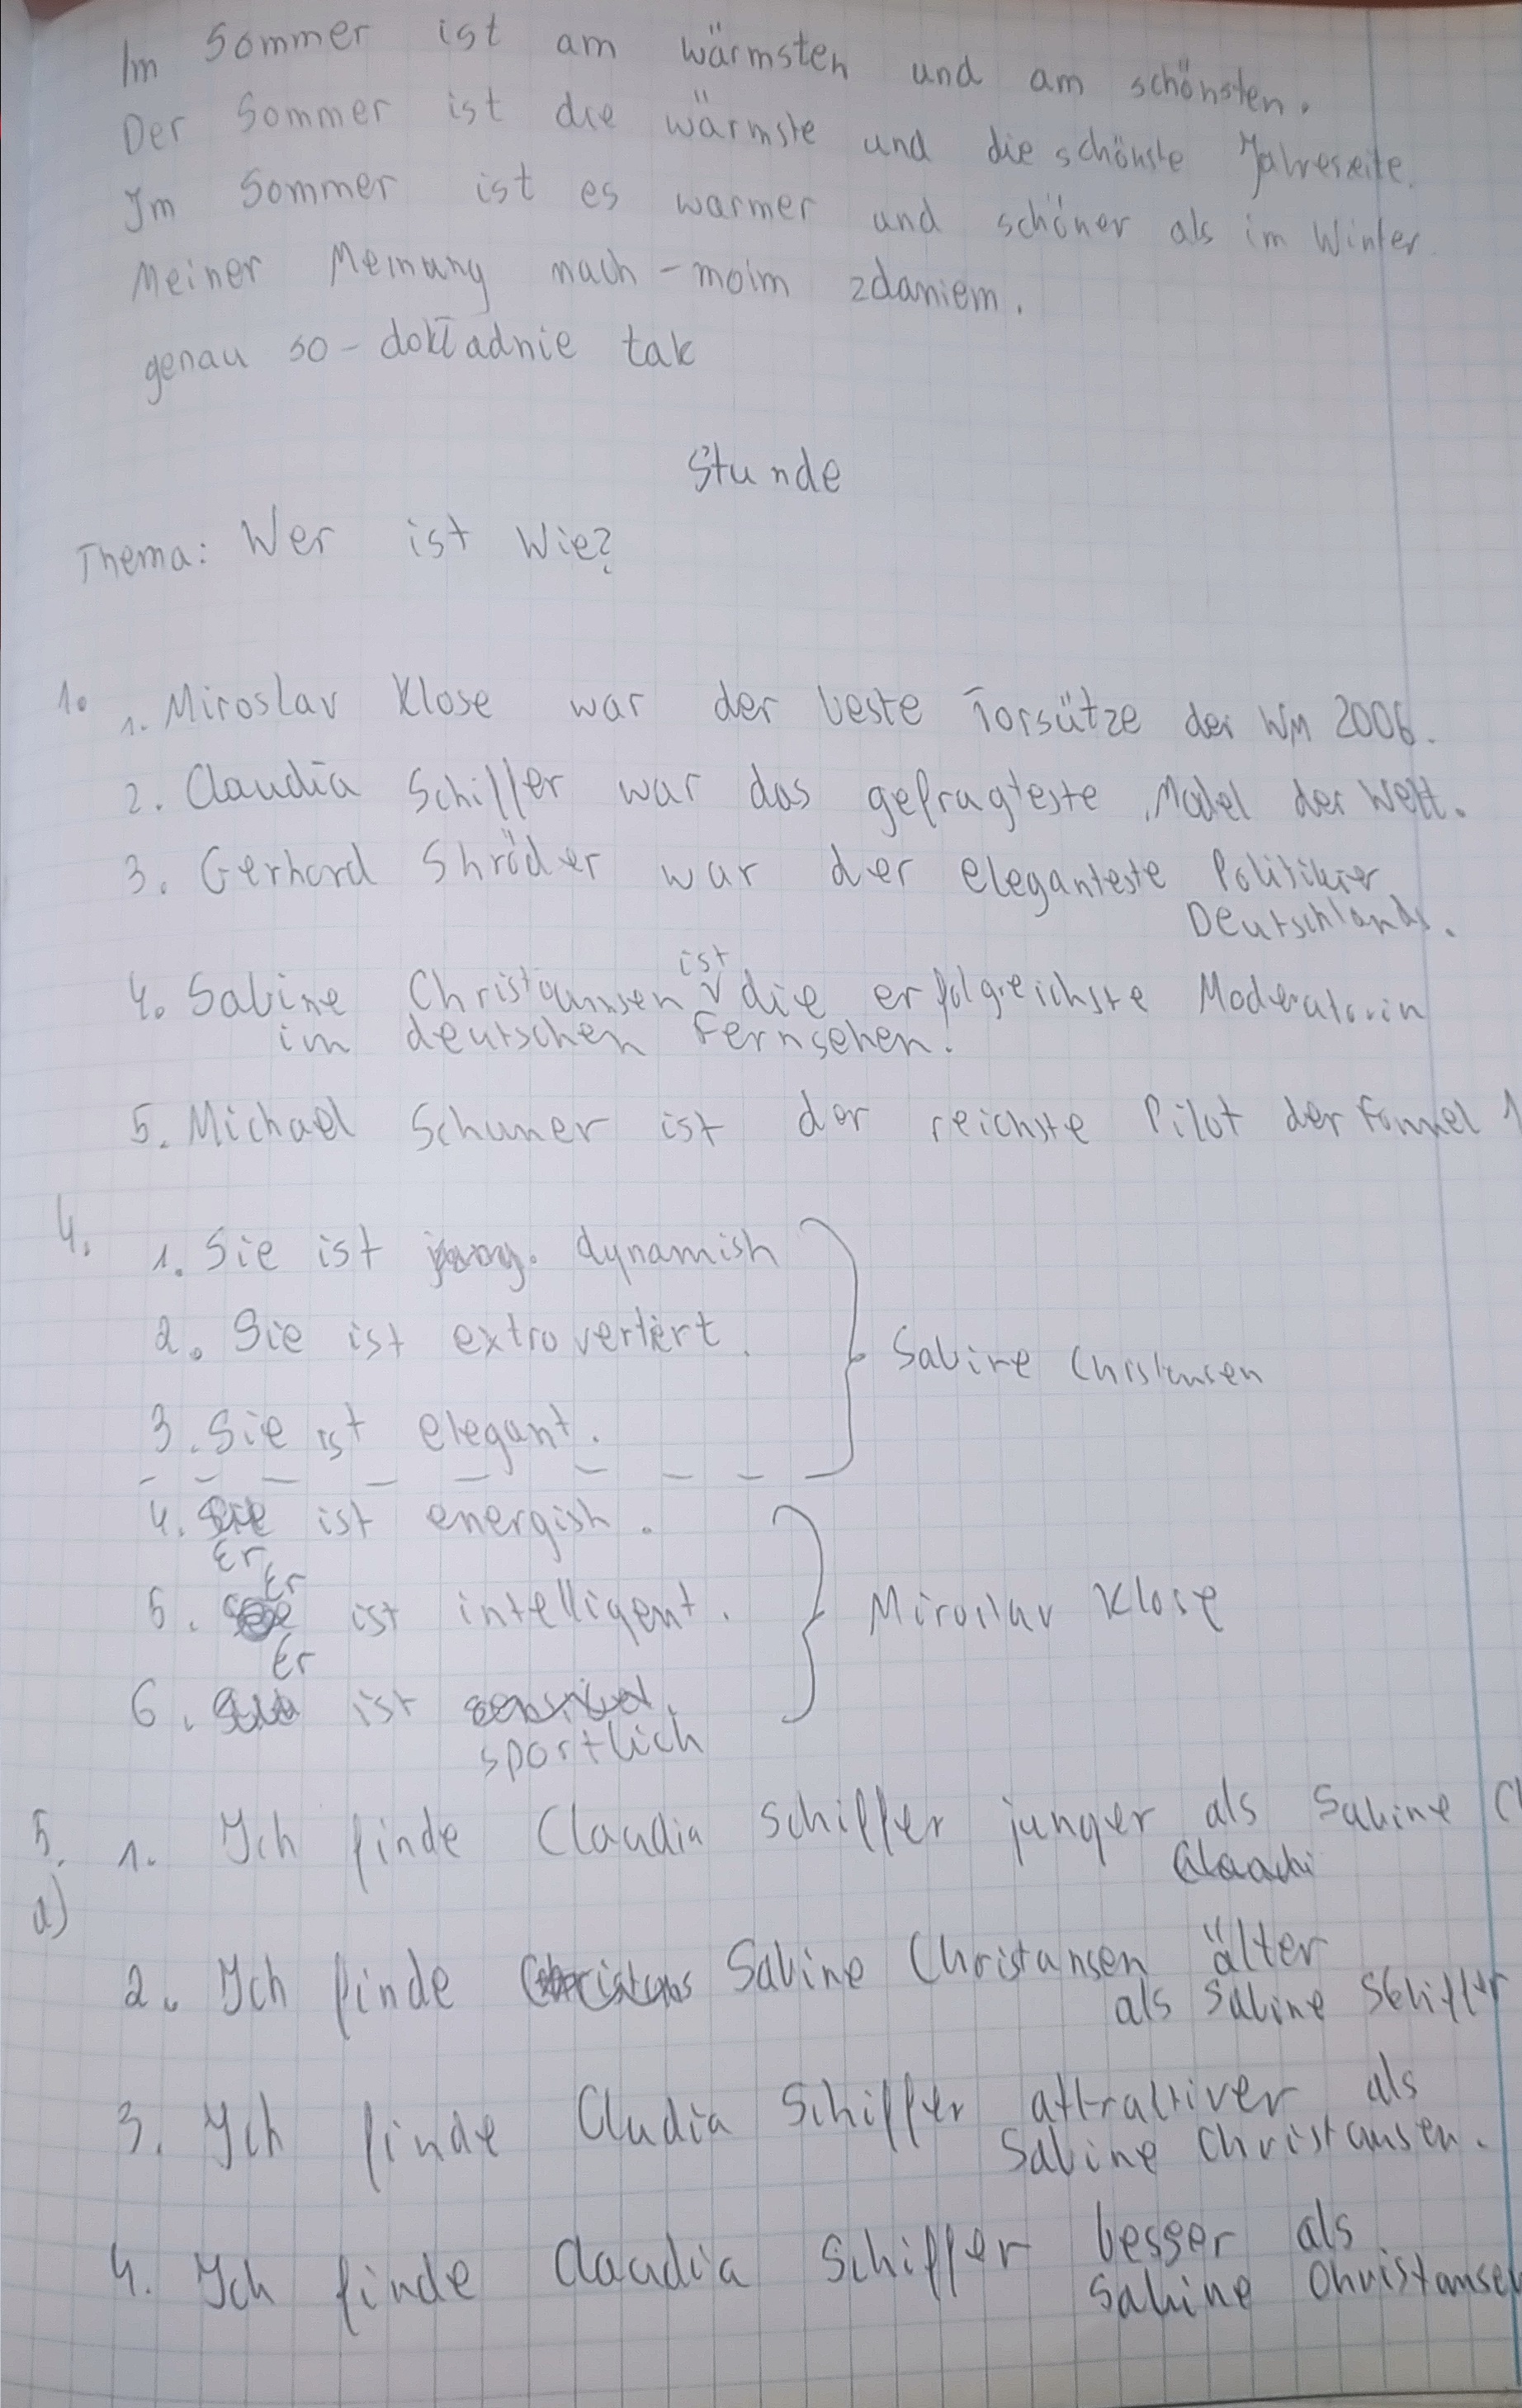 Im Sommer ist am wärmsten und am schönsten.
Der Sommer ist die wärmste und die schönste Jahreseite.
Im Sommer ist es warmer und schöner als im Winter.
Meiner Meinung nach - moim zdaniem.
genau so - dokładnie tak
Stunde
Thema: Wer ist Wie?
1. 1. Miroslav Klose war der beste Torsütze der WM 2006.
2. Claudia Schiffer war das gefragteste Model der Welt.
3. Gerhard Shröder war der eleganteste Politiker
Deutschlands.
ist
4. Sabine Christiannsen die erfolgreichste Moderatorin
im deutschen Fernsehen.
5. Michael Schumer ist der reichste Pilot der Formel 1
4. 1. Sie ist dynamish
2. Sie ist extrovertiert.
Sabine Christansen
3. Sie ist elegant.
4. Sie ist energish.
Er
Er
5. ist intelligent.
Miroslav Klose
Er
6. ist
sportlich
5. 1. Ich finde Claudia Schiffer junger als Sabine Ch
a)
2. Ich finde Sabine Christansen älter
als Sabine Schiffer
3. Ich finde Cludia Schiffer attraktiver als
Sabine Christansen.
4. Ich finde Claudia Schiffer besser als
Sabine Christansen